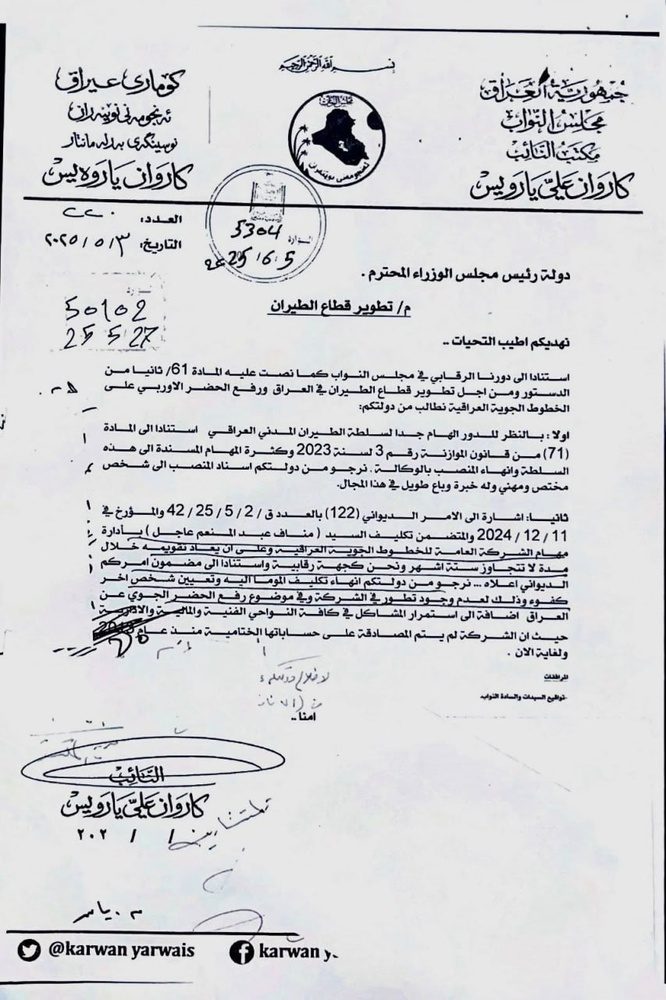 بسم الله الرحمن الرحيم
جمهورية العراق
مجلس النواب
مكتب النائب
كاروان علي يارويس
كۆماری عیراق
ئەنجومەنی نوێنەران
نوسینگەی پەرلەمانتار
کاروان یاروەیس
العدد:
التاريخ: ٢٠٢٥/٥/٣
5304
2025/6/5
50102
25 5 27
دولة رئيس مجلس الوزراء المحترم .
م/ تطوير قطاع الطيران
نهديكم اطيب التحيات ..
استنادا الى دورنا الرقابي في مجلس النواب كما نصت عليه المادة 61/ ثانيا من
الدستور ومن اجل تطوير قطاع الطيران في العراق ورفع الحضر الاوربي على
الخطوط الجوية العراقية نطالب من دولتكم:
اولا : بالنظر للدور الهام جدا لسلطة الطيران المدني العراقي استنادا الى المادة
(71) من قانون الموازنة رقم 3 لسنة 2023 وكثرة المهام المسندة الى هذه
السلطة وانهاء المنصب بالوكالة . نرجو من دولتكم اسناد المنصب الى شخص
مختص ومهني وله خبرة وباع طويل في هذا المجال.
ثانيا: اشارة الى الامر الديواني (122) بالعدد ق / 2 / 5 / 25 / 42 والمؤرخ في
11 / 12 / 2024 والمتضمن تكليف السيد ( مناف عبد المنعم عاجل ) بأدارة
مهام الشركة العامة للخطوط الجوية العراقية وعلى ان يعاد تقويمه خلال
مدة لا تتجاوز ستة اشهر ونحن كجهة رقابية واستنادا الى مضمون امركم
الديواني اعلاه ... نرجو من دولتكم انهاء تكليف الموما اليه وتعيين شخص اخر
كفوء وذلك لعدم وجود تطور في الشركة وفي موضوع رفع الحضر الجوي عن
العراق اضافة الى استمرار المشاكل في كافة النواحي الفنية والمالية والادارية
حيث ان الشركة لم يتم المصادقة على حساباتها الختامية منذ عام
ولغاية الان .
المرافقات
تواقيع السيدات والسادة النواب.
امنا..
النائب
كاروان علي يارويس
٢٠٢ / /
@karwan yarwais
karwan y